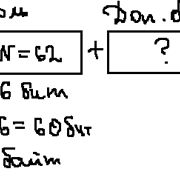 Доп.
N=62 + ?
6 бит
6=60бит
байт